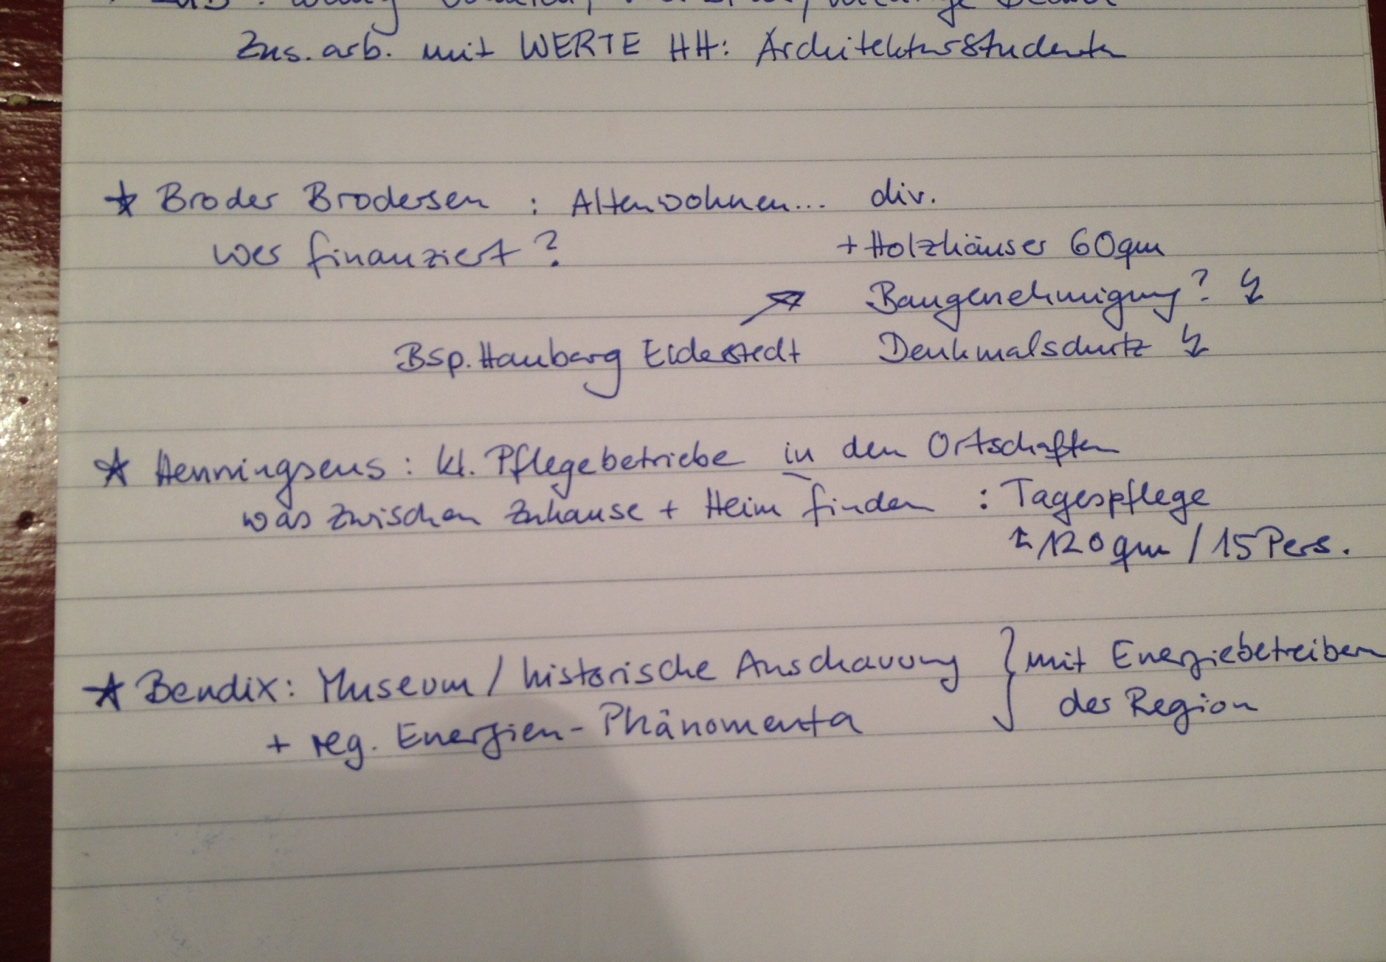 Zus.arb. mit WERTE HH: Architekturstudenten
* Broder Brodersen : Altenwohnen... div.
wer finanziert? + Holzhäuser 60qm
Baugenehmigung? ↯
Bsp. Hauberg Eiderstedt ↗ Denkmalschutz ↯
* Henningsens: kl. Pflegebetriebe in den Ortschaften
was zwischen Zuhause + Heim finden : Tagespflege
↑ 120qm / 15 Pers.
* Bendix: Museum / historische Anschauung } mit Energiebetreibern
+ reg. Energien-Phänomenta der Region